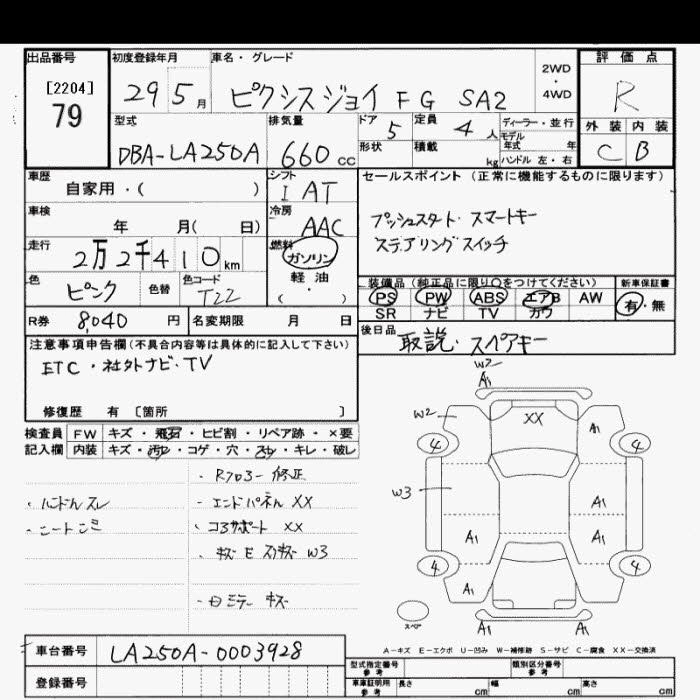 出品番号 初度登録年月 車名・グレード 評価点
[2204] 79
29 5月 ピクシスジョイ FG SA2
2WD・4WD
R
型式 排気量 ドア 定員 ディーラー・並行 外装 内装
DBA-LA250A 660cc 5 4人 モデル年式 年 C B
形状 積載 kg ハンドル 左・右
車歴 シフト セールスポイント(正常に機能するものに限ります)
自家用・( ) I AT
車検 冷房 プッシュスタート・スマートキー
年 月( 日) AAC ステアリングスイッチ
走行 燃料
2万2千410km ガソリン
軽油
( )
色 色替 色コード 装備品(純正品に限り○をつけてください) 新車保証書
ピンク T22 PS PW ABS エアB AW 有・無
SR ナビ TV カワ
R券 8,040円 名変期限 月 日 後日品
取説・スペアキー
注意事項申告欄(不具合内容等は具体的に記入して下さい)
ETC・社外ナビ・TV
修復歴 有 [箇所 ]
検査員 FW キズ・飛石・ヒビ割・リペア跡・×要
記入欄 内装 キズ・汚レ・コゲ・穴・スレ・キレ・破レ
・ハンドルスレ
・シートシミ
・Rフロアー修正
・エンドパネル XX
・コアサポート XX
W3
・キズ
W2
A1
W2
XX
A1
4
4
W3
A1
A1
A1
4
A1
4
スペア
A1
A1
A-キズ E-エクボ U-凹み W-補修跡 S-サビ C-腐食 XX-交換済
車台番号 LA250A-0003928
登録番号
型式指定番号 参考 類別区分番号 参考
車庫証明用 参考 長さ cm 幅 cm 高さ cm